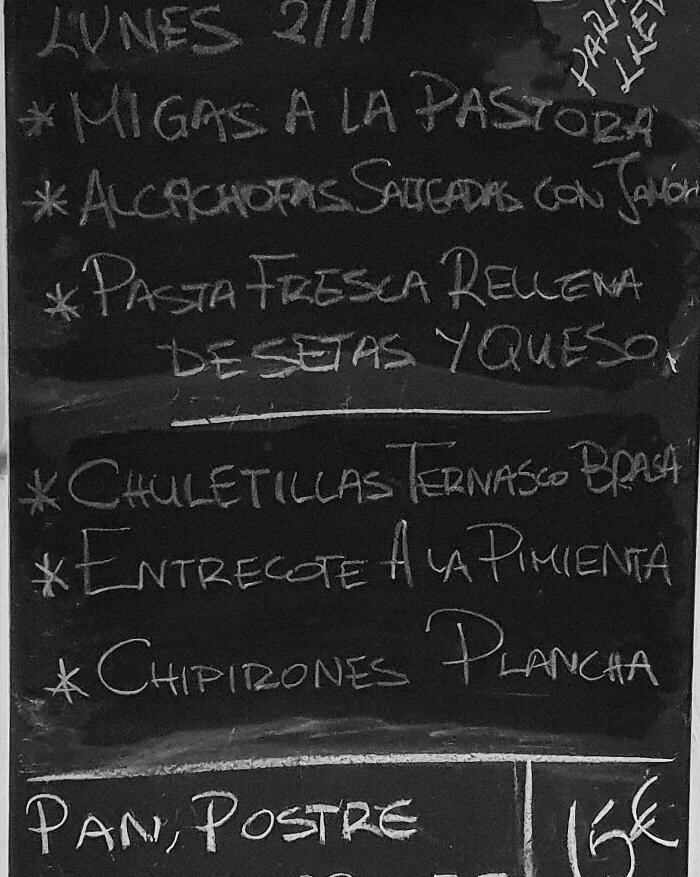 LUNES 2/11
PARA
* MIGAS A LA PASTORA
* ALCACHOFAS SALTEADAS CON JAMÓN
* PASTA FRESCA RELLENA
DE SETAS Y QUESO.
* CHULETILLAS TERNASCO BRASA
* ENTRECOTE A LA PIMIENTA
* CHIPIRONES PLANCHA
PAN, POSTRE
15€